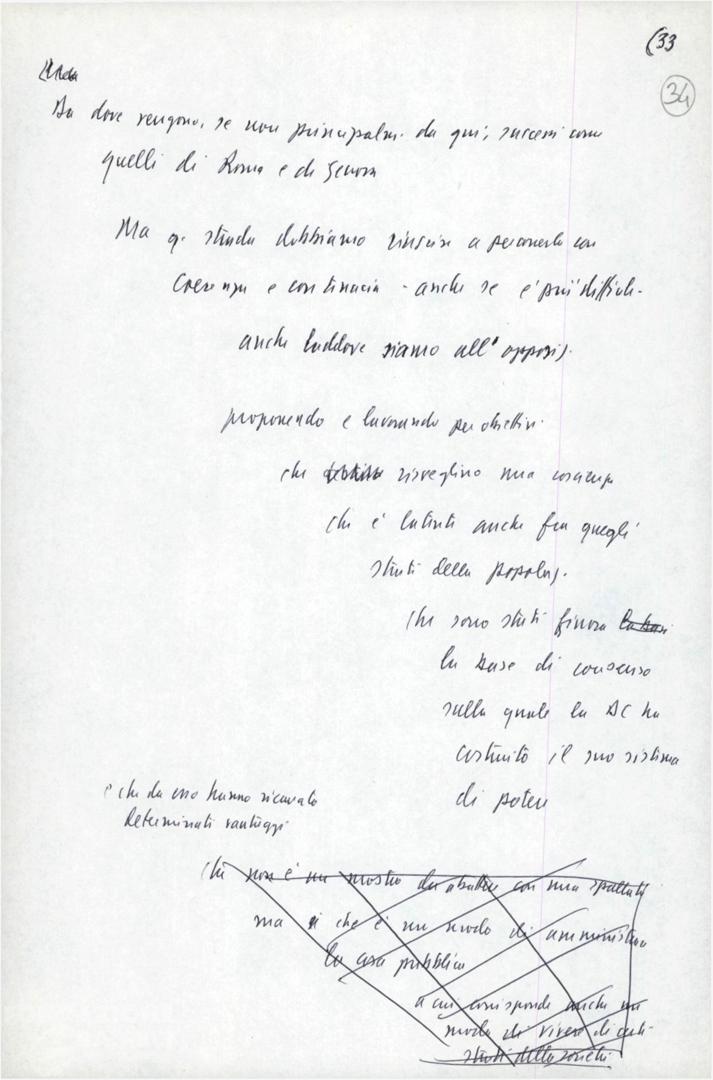 (33
34
Da dove vengono, se non principalm. da qui, successi come
quelli di Roma e di Genova
Ma q. strada dobbiamo riuscire a percorrerla con
coerenza e continuità - anche se è più difficile -
anche laddove siamo all'opposiz.
proponendo e lavorando per obiettivi
che risveglino una coscienza
che è latente anche fra quegli
strati della popolaz.
che sono stati finora la base
la base di consenso
sulla quale la DC ha
costruito il suo sistema
di potere
e che da esso hanno ricavato
determinati vantaggi
che non è un mostro da abbattere con una spallata
ma si che è un modo di amministrare
la cosa pubblica
a cui corrisponde anche un
modo di vivere di certi
strati della società